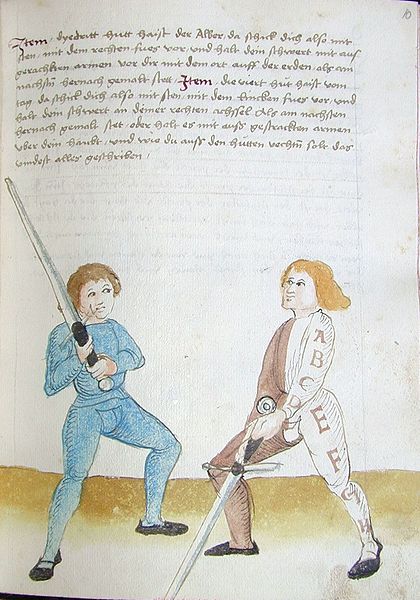 10
Item, dye dritt hutt haist der Alber, da schick dich also mit
sten, mit dem rechten fues vor, vnd halt dein schwert mit auß
gerachten armen vor dir mit dem ort auff der erden, als am
nachstn hernach gemalt stett, Item, die viert hut haist vom
tag, da schick dich also mit sten, mit dem lincken fues vor, vnd
halt dein schwert an deiner rechten achsel, Als am nachsten
hernach gemalt stet, oder halt es mit auß gestrackten armen
vber dein haubt, vnd wie du auß den hutten vechtn solt das
vindest alles geschriben,
A
B
C
E
F
G
H